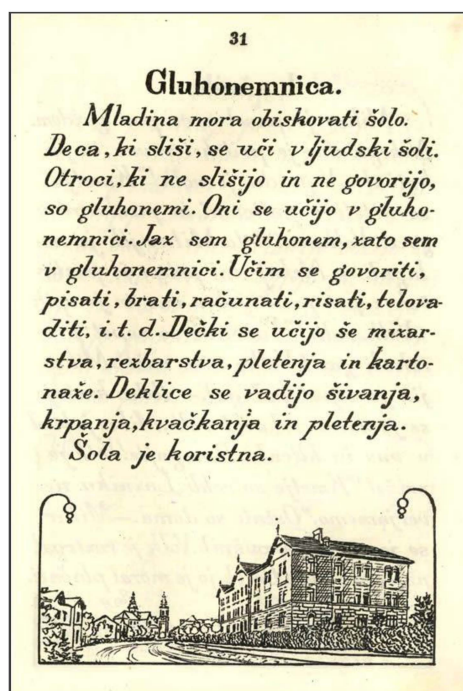 31
Gluhonemnica.
Mladina mora obiskovati šolo.
Deca, ki sliši, se uči v ljudski šoli.
Otroci, ki ne slišijo in ne govorijo,
so gluhonemi. Oni se učijo v gluho-
nemnici. Jaz sem gluhonem, zato sem
v gluhonemnici. Učim se govoriti,
pisati, brati, računati, risati, telova-
diti, i. t. d. Dečki se učijo še mizar-
stva, rezbarstva, pletenja in karto-
naže. Deklice se vadijo šivanja,
krpanja, kvačkanja in pletenja.
Šola je koristna.